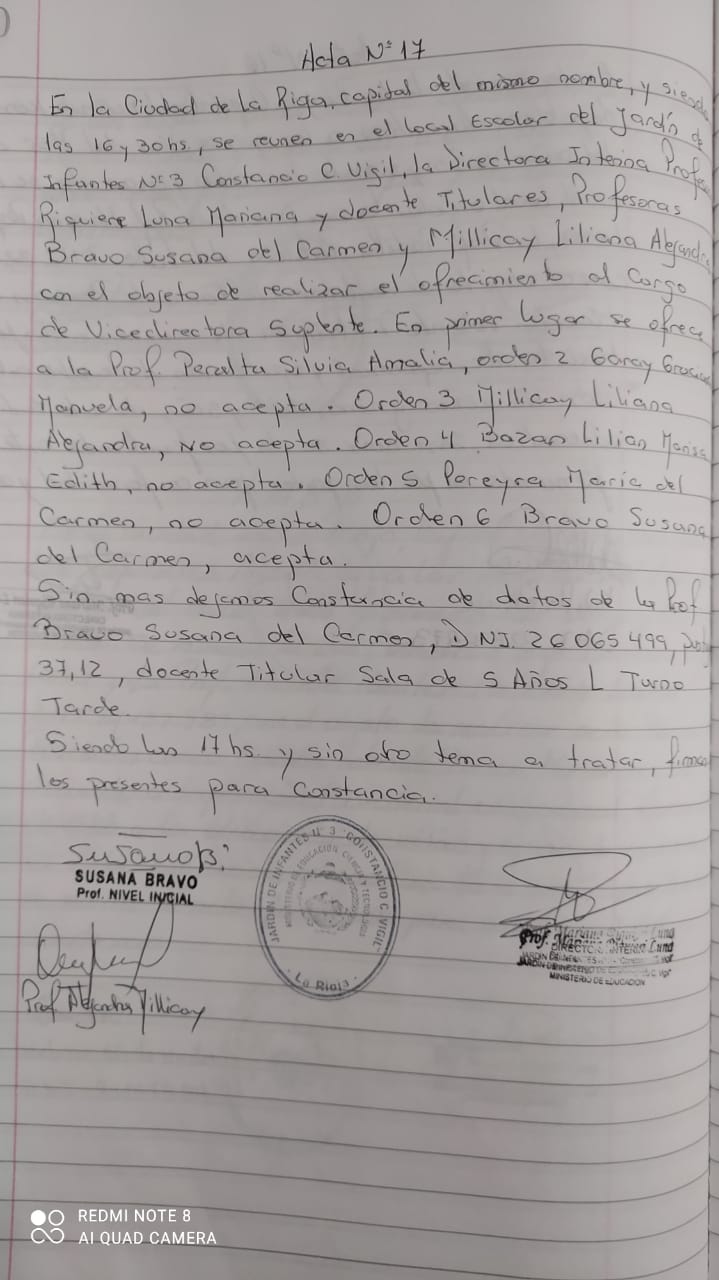 Acta N° 17
En la Ciudad de la Rioja, capital del mismo nombre, y siendo
las 16 y 30 hs, se reunen en el local Escolar del Jardín de
Infantes N° 3 Constancio C. Vigil, la Directora Interina Profes
Riquiere Luna Mariana y docente Titulares, Profesoras
Bravo Susana del Carmen y Millicay Liliana Alejandra
con el objeto de realizar el ofrecimiento al Cargo
de Vicedirectora Suplente. En primer lugar se ofrece
a la Prof. Peralta Silvia Amalia, orden 2 Garay
Manuela, no acepta. Orden 3 Millicay Liliana
Alejandra, No acepta. Orden 4 Bazan Lilian Marisa
Edith, no acepta. Orden 5 Pereyra María del
Carmen, no acepta. Orden 6 Bravo Susana
del Carmen, acepta.
Sin mas dejamos Constancia de datos de la Prof
Bravo Susana del Carmen, DNI. 26 065 499,
37,12, docente Titular Sala de 5 Años L Turno
Tarde.
Siendo las 17 hs y sin otro tema a tratar, firman
los presentes para Constancia.
Susana B.
SUSANA BRAVO
Prof. NIVEL INICIAL
Prof Alejandra Millicay
JARDIN DE INFANTES N° 3 "CONSTANCIO C. VIGIL"
MINISTERIO DE EDUCACION, CIENCIA Y TECNOLOGIA
La Rioja
Prof. Mariana Luna
DIRECTORA INTERINA
MINISTERIO DE EDUCACION
REDMI NOTE 8
AI QUAD CAMERA